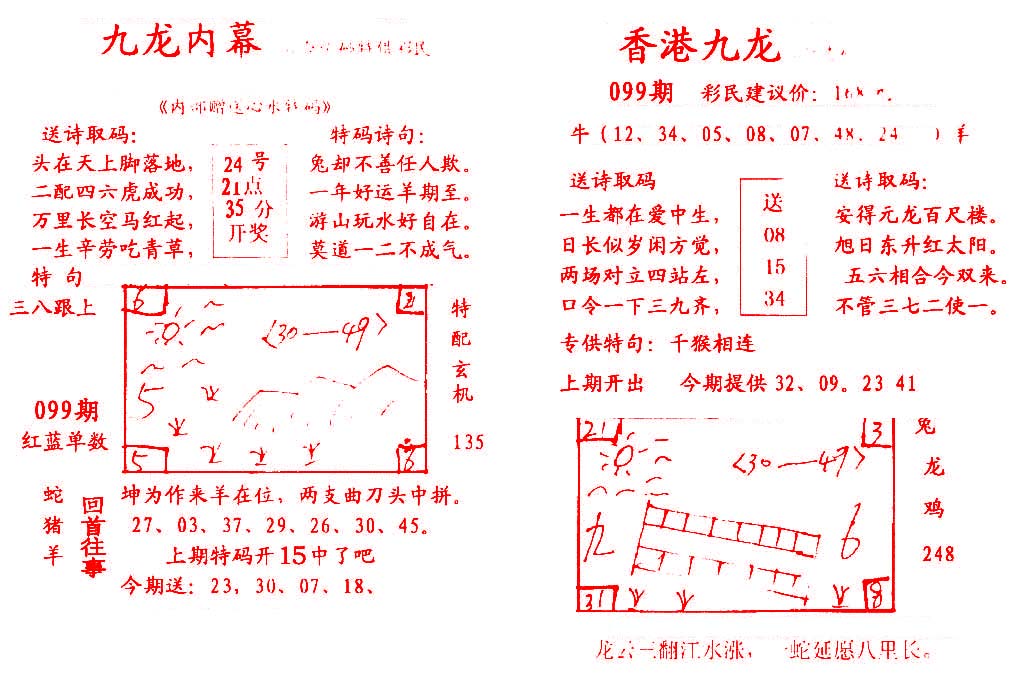 九龙内幕
《内部赠送心水特码》
送诗取码:
特码诗句:
头在天上脚落地,
二配四六虎成功,
万里长空马红起,
一生辛劳吃青草,
24号
21点
35分
开奖
兔却不善任人欺。
一年好运羊期至。
游山玩水好自在。
莫道一二不成气。
特 句
三八跟上
099期
红蓝单数
6
21
〈30——49〉
5
5
6
特
配
玄
机
135
蛇
猪
羊
回首往事
坤为作来羊在位,两支曲刀头中拼。
27、03、37、29、26、30、45。
上期特码开15中了吧
今期送: 23, 30、07、18、
香港九龙
099期 彩民建议价: 168
牛 ( 12、34、05、08、07、48、24 ) 羊
送诗取码
一生都在爱中生,
日长似岁闲方觉,
两场对立四站左,
口令一下三九齐,
送
08
15
34
送诗取码:
安得元龙百尺楼。
旭日东升红太阳。
五六相合今双来。
不管三七二使一。
专供特句: 千猴相连
上期开出 今期提供 32、09。23 41
21
3
〈30——49〉
九
6
31
8
兔
龙
鸡
248
龙云三翻江水涨, 一蛇延愿八里长。